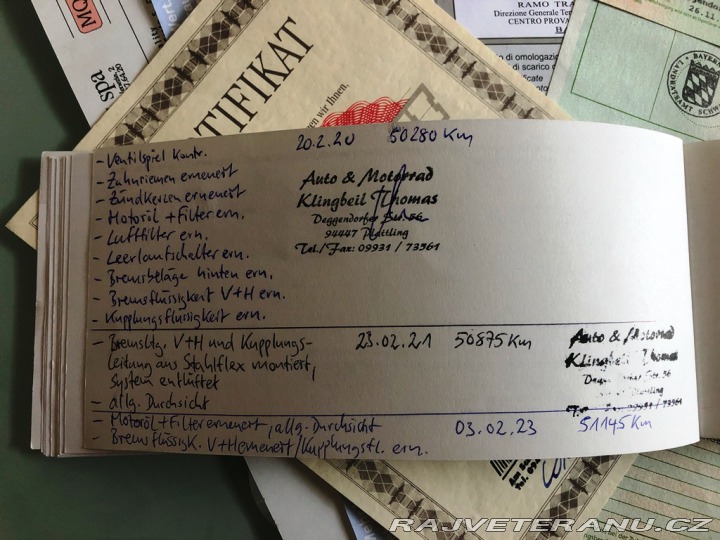 MO
spa
RTIFIKAT
en wir Ihnen.
RAMO TRA
Direzione Generale Ter
CENTRO PROVA
lo di omologazio
di scarico d
BAYER
LANDRATSAMT SCHW
26.11
20.2.20 50280 Km
- Ventilspiel Kontr.
- Zahnriemen erneuert
- Zündkerzen erneuert
- Motoröl + Filter ern.
- Luftfilter ern.
- Leerlaufschalter ern.
- Bremsbeläge hinten ern.
- Bremsflüssigkeit V+H ern.
- Kupplungsflüssigkeit ern.
Auto & Motorrad
Klingbeil Thomas
Deggendorfer Str. 56
94447 Plattling
Tel./Fax: 09931 / 73561
- Bremsltg. V+H und Kupplungs-
leitung aus Stahlflex montiert,
System entlüftet
- allg. Durchsicht
23.02.21 50875 Km
Auto & Motorrad
Klingbeil Thomas
- Motoröl + Filter erneuert, allg. Durchsicht
- Bremsflüssigk. V+H erneuert / Kupplungsfl. ern.
03.02.23 51145 Km
RAJVETERANU.CZ